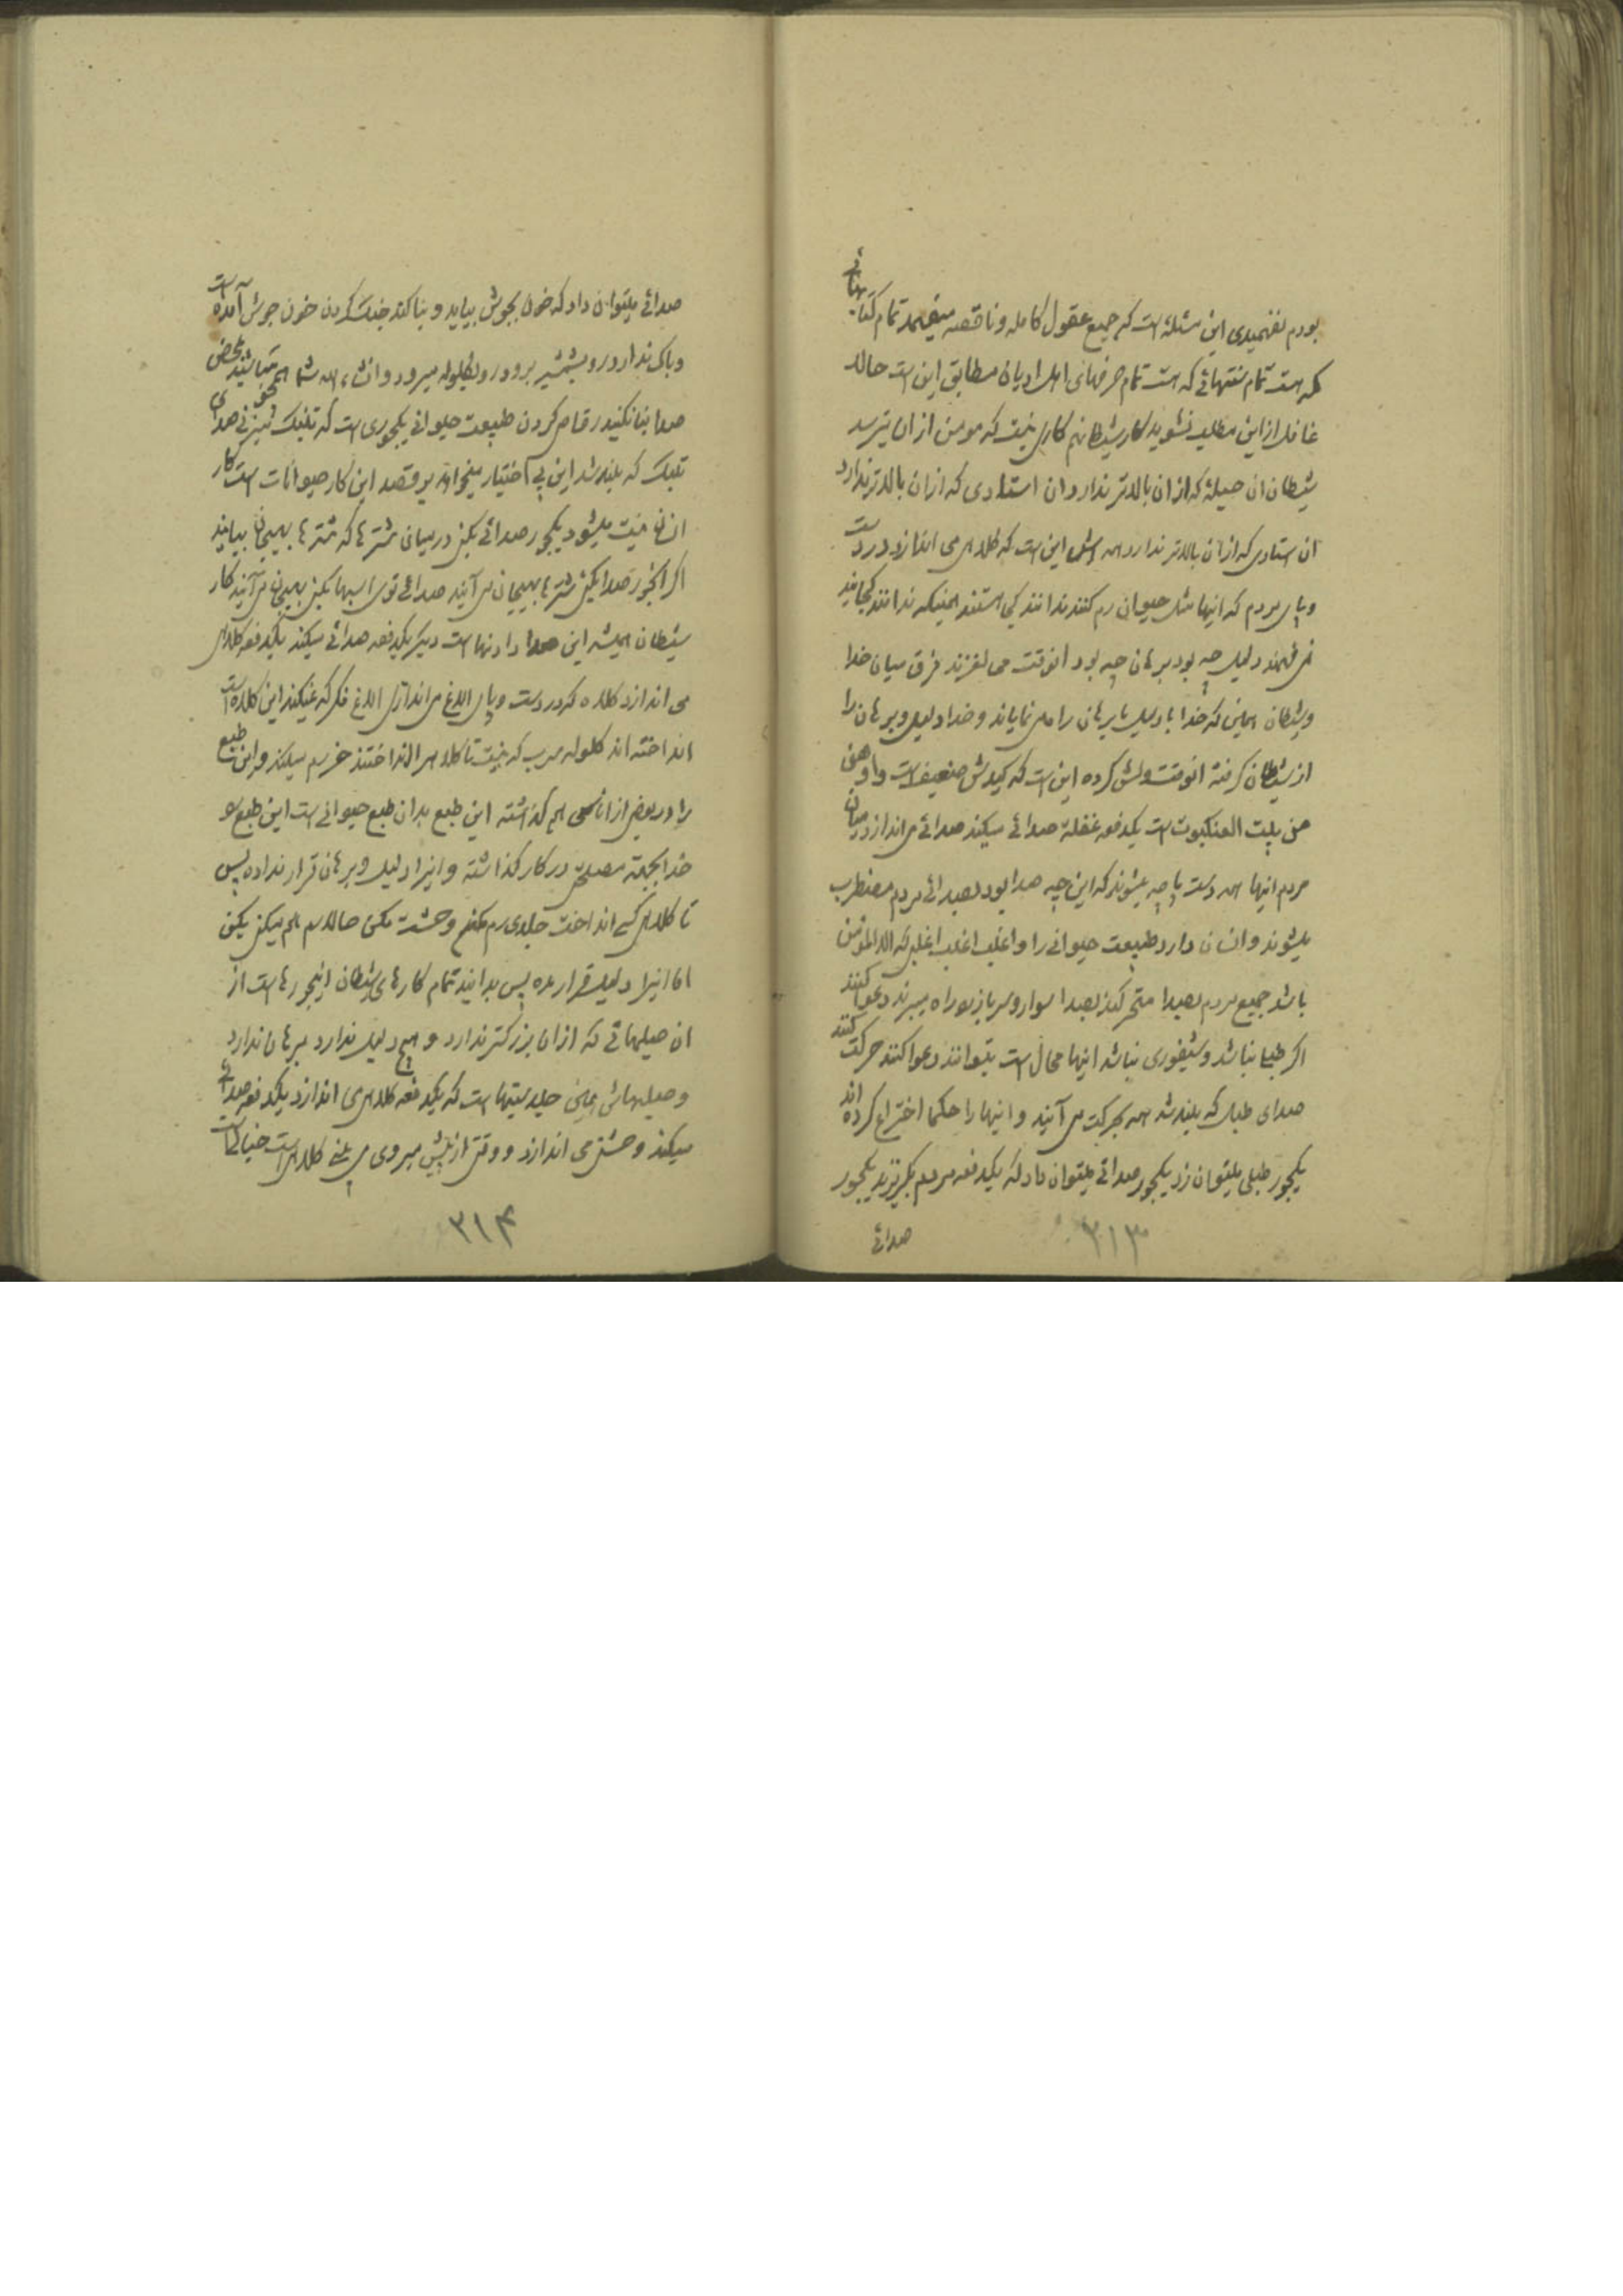 بودم بفهمیدی این مسئله‌ایست که جمیع عقول کامله و ناقصه میفهمد تمام کتابهائی
که هست تمام سنتهائی که هست تمام حرفهای اهل ادیان مطابق این است حالا
غافل از این مطلب نشوید کار شیطان هم کاری نیست که مومن از ان بترسد
شیطان ان حیلهٔ که از ان بالاتر ندارد و ان استادی که از ان بالاتر ندارد
ان ستادی که از ان بالاتر ندارد همه‌اش این است که کلاهی می اندازد در دست
و پای مردم که اینها مثل حیوان رم کنند ندانند کی هستند همینکه ندانند کجایند
نمی فهمند دلیل چه بود برهان چه بود انوقت می لغزند فرق میان خدا
و شیطان همین که خدا با دلیل با برهان راه می نمایاند و خدا دلیل و برهان را
از شیطان گرفته انوقت ولش کرده این است که کیدش ضعیف است و اوهن
من بیت العنکبوت است یکدفعه غفلة صدائی میکند صدائی می اندازد میان
مردم اینها همه دست پاچه میشوند که این چه صدا بود بصدائی مردم مضطرب
میشوند و انسان دارد طبیعت حیوانی را و اغلب اغلب اغلبی که الا المؤمن
باشد جمیع مردم بصدا متحرکند بصدا سوار و سرباز براه میبرند دعوا کنند
اگر طبل نباشد و شیفوری نباشد اینها محال است بتوانند دعوا کنند حرکت کنند
صدای طبل که بلند شد همه بحرکت می آیند و اینها را حکما اختراع کرده اند
یکجور طبلی میتوان زد یکجور صدائی میتوان داد که یکدفعه مردم بگریزند یکجور
صدائی
۳۱۳
صدائی میتوان داد که خون بجوش بیاید و بنا کند جنگ کردن خون جوش آمده است
و باک ندارد رو بشمشیر برود رو بگلوله میرود و انشاء الله شما همچو نباشید بمحض
صدا بنا نکنید رقاصی کردن طبیعت حیوانی یکجوری است که تلنبک میزنی صدای
تلنبک که بلند شد این بی اختیار میخواهد برقصد این کار حیوانات است کار
انسان نیست میشود یکجور صدائی بکنی در میان شترها که شترها بهیجان بیایند
اگر انجور صدا بکنی شترها بهیجان می آیند صدائی توی اسبها بکنی بهیجان می آیند کار
شیطان همیشه این صدا دادنها است دیگر یکدفعه صدائی میکند یکدفعه کلاهی
می اندازد کلاه که در دست و پای الاغ می اندازی الاغ فکر که نمیکند این کلاه است
انداخته اند گلوله سرب که نیست تا کلاه را انداختند خر رم میکند و این طبع
را در بعض از اناسی هم گذاشته این طبع بدان طبع حیوانی است این طبع را
خدا بجهة مصلحتی در کار گذاشته و اینرا دلیل و برهان قرار نداده پس
تا کلاهی کسی انداخت جلدی رم مکن وحشت مکن حالا رم هم میکنی بکن
اما اینرا دلیل قرار مده پس بدانید تمام کارهای شیطان اینجورها است از
ان حیلهائی که از ان بزرگتر ندارد و هیچ دلیل ندارد برهان ندارد
و حیلهاش همین جلدستیها است که یکدفعه کلاهی می اندازد یکدفعه صدائی
میکند وحشتی می اندازد و وقتی از پیش میروی می بینی کلاهی است خیالات
۳۱۴